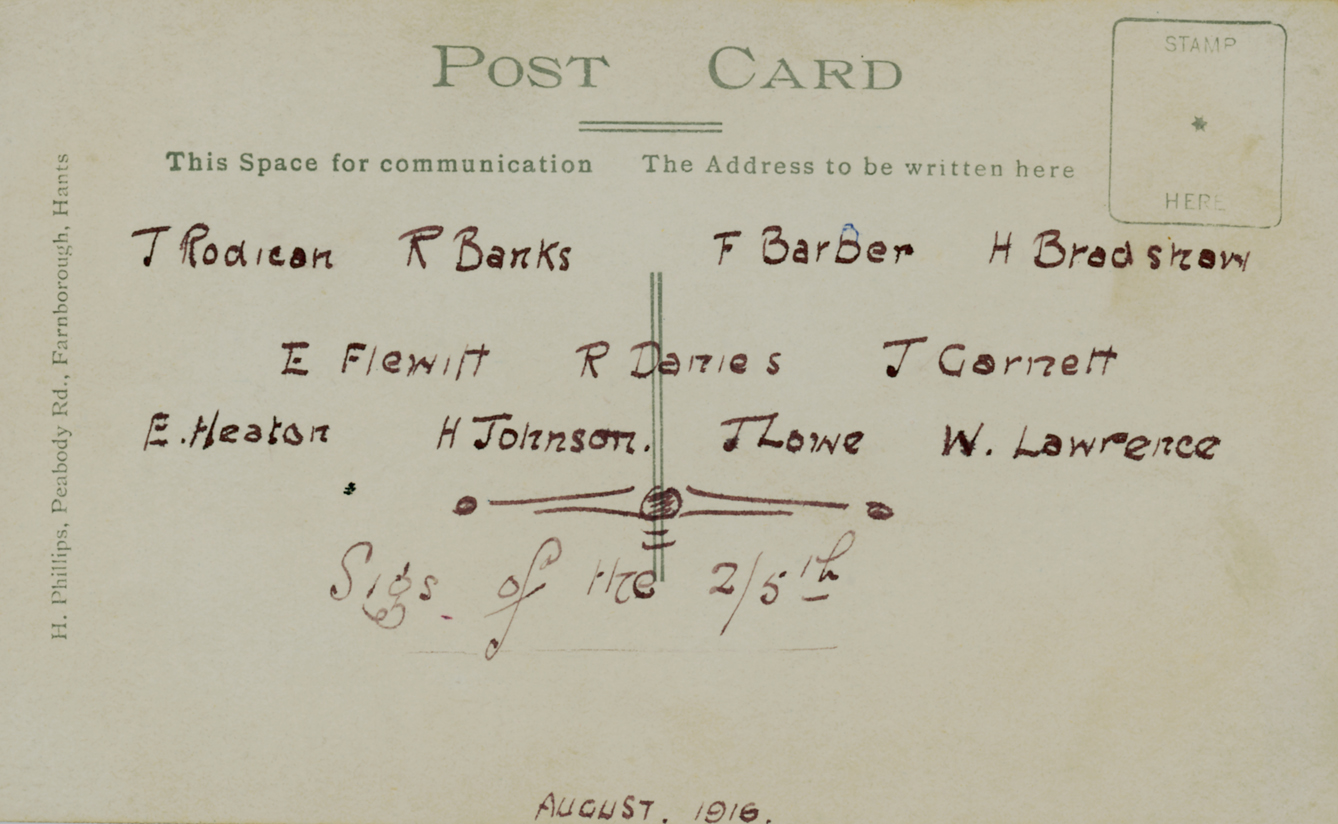 POST CARD
STAMP
HERE
This Space for communication The Address to be written here
H. Phillips, Peabody Rd., Farnborough, Hants
J Rodican R Banks F Barber H Bradshaw
E Flewitt R Danies J Garnett
E. Heaton H Johnson. J Lowe W. Lawrence
Sigs of the 2/5th
AUGUST. 1916.